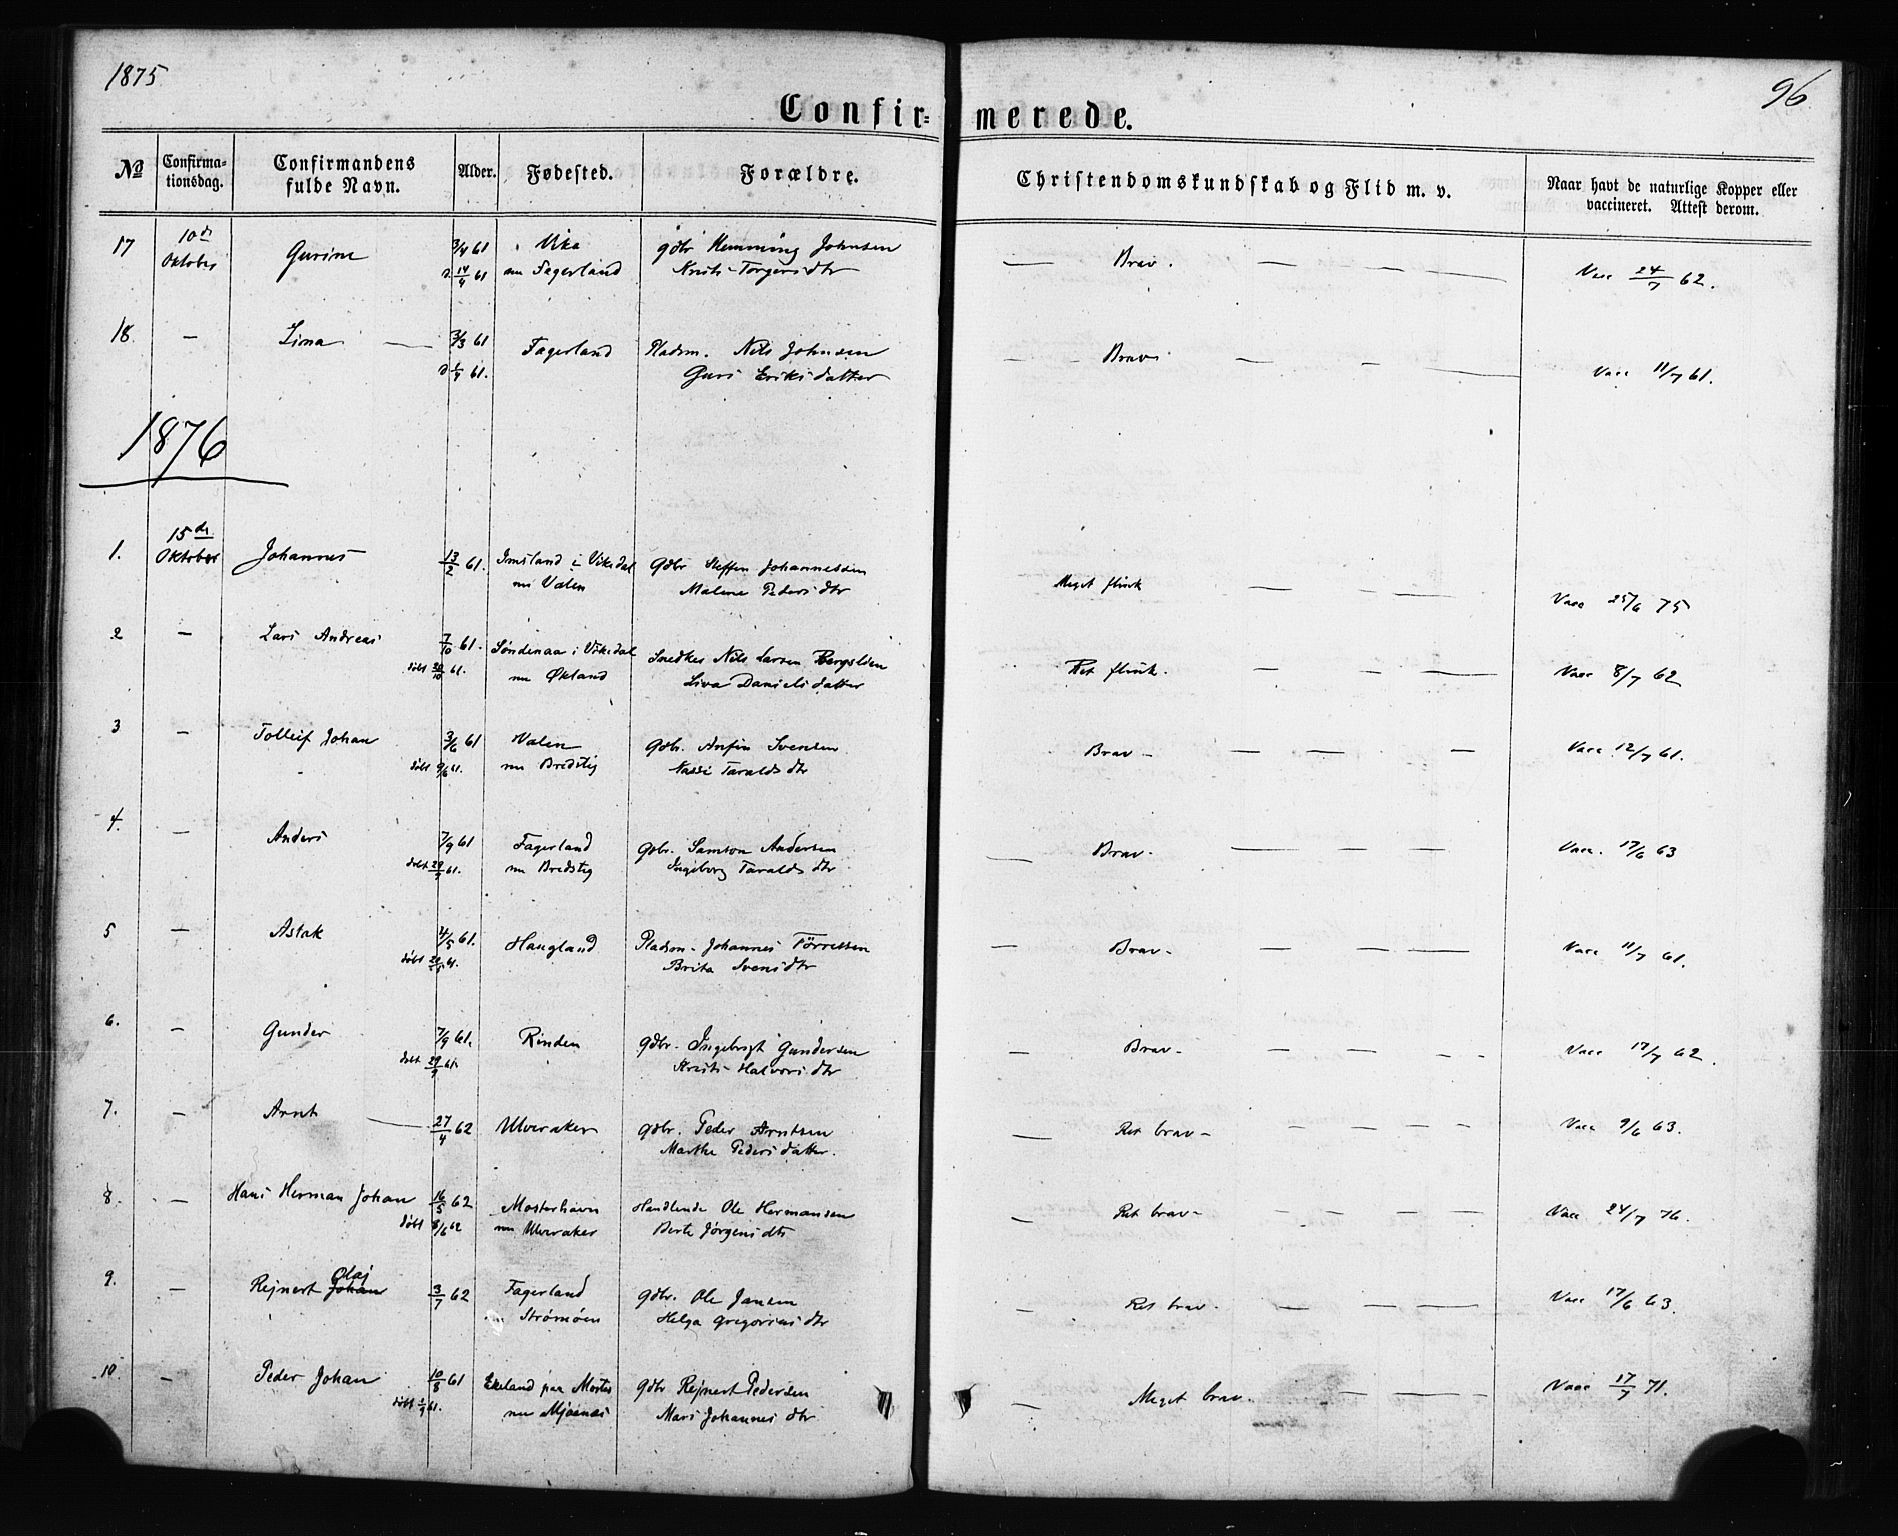 1875
96
Confir= merede.
No Confirma- tionsdag. Confirmandens fulde Navn. Alder. Fødested. Forældre. Christendomskundskab og Flid m. v. Naar havt de naturlige Kopper eller vaccineret. Attest derom.
17 10de Oktober Gurine 3/4 61 Vika gdbr Hemming Johnsen — Brav. — — — Vacc 24/7 62.
D. 14/4 61 nu Fagerland Torgersdtr
18. — Lina — 3/3 61 Fagerland Pladsm. Nils Johnsen — — Brav. — — — Vacc 11/7 61.
61. Guri Eriksdatter
1876
1. 15de Oktober Johannes 13/2 61. Imsland i Vikedal Gdbr Steffen Johannessen Meget flink — — — Vacc 25/6 75
nu Valen Malene Pedersdtr
2 — Lars Andreas 7/10 61. Søndenaa i Vikedal Snedker Nils Larsen Ret flink. — — — Vacc 8/7 62
døbt 20/10 61. nu Økland Liva Danielsdatter
3 — Tolleif Johan 3/6 61 Valen Gdbr. Anfin Svensen Brav — — — — Vacc 12/7 61.
døbt 9/6 61. nu Bredstig Taraldsdtr
4. — Anders 7/9 61 Fagerland Gdbr. Samson Andersen — Brav. — — — Vacc. 17/6 63
døbt 29/9 61. nu Bredstig Ingeborg Taraldsdtr
5 — Astak 4/5 61. Haugland Pladsm. Johannes Tørressen — Brav — — — — Vacc 11/7 61.
døbt 20/5 61. Brita Svensdtr
6. — Gunder 7/9 61. Rinden gdbr. Ingebrigt Gundersen — Brav — — — — - Vacc 17/7 62.
døbt 29/9 61. Halvorsdtr
7. — Arnt — 27/4 62 Ulveraker gdbr. Peder Arntsen — Ret brav — — — — — Vacc 9/6 63.
Marthe Pedersdatter.
8. — Hans Herman Johan 16/5 62 Mosterhavn Handlende Ole Hermansen — Ret brav — — — — — Vacc 24/7 76.
døbt 8/6 62 nu Ulveraker Berte Jørgensdtr
9. — Rejnert Johan Olaj 3/7 62 Fagerland Gdbr. Ole Jansen — Ret brav. — — — — Vacc 17/6 63.
Strømøen Helga Gregoriusdtr
10. — Peder Johan 10/8 61 Ekeland paa Moster gdbr Rejnert Pedersen — Meget brav. — — — Vacc 17/7 71.
døbt 1/9 61. nu Mjaenes Mari Johannesdtr